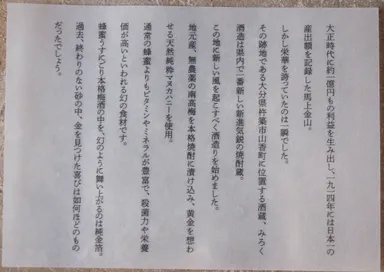 大正時代に約一億円もの利益を生み出し、一九一四年には日本一の
産出額を記録した馬上金山。
しかし栄華を誇っていたのは一瞬でした。
その跡地である大分県杵築市山香町に位置する酒蔵、みろく
酒造は県内で一番新しい新進気鋭の焼酎蔵。
この地に新しい風を起こすべく酒造りを始めました。
地元産、無農薬の南高梅を本格焼酎に漬け込み、黄金を想わ
せる天然純粋マヌカハニーを使用。
通常の蜂蜜よりもビタミンやミネラルが豊富で、殺菌力や栄養
価が高いといわれる幻の食材です。
蜂蜜うすにごり本格梅酒の中を、幻のように舞い上がるのは純金箔。
過去、終わりのない砂の中、金を見つけた喜びは如何ほどのもの
だったでしょう。